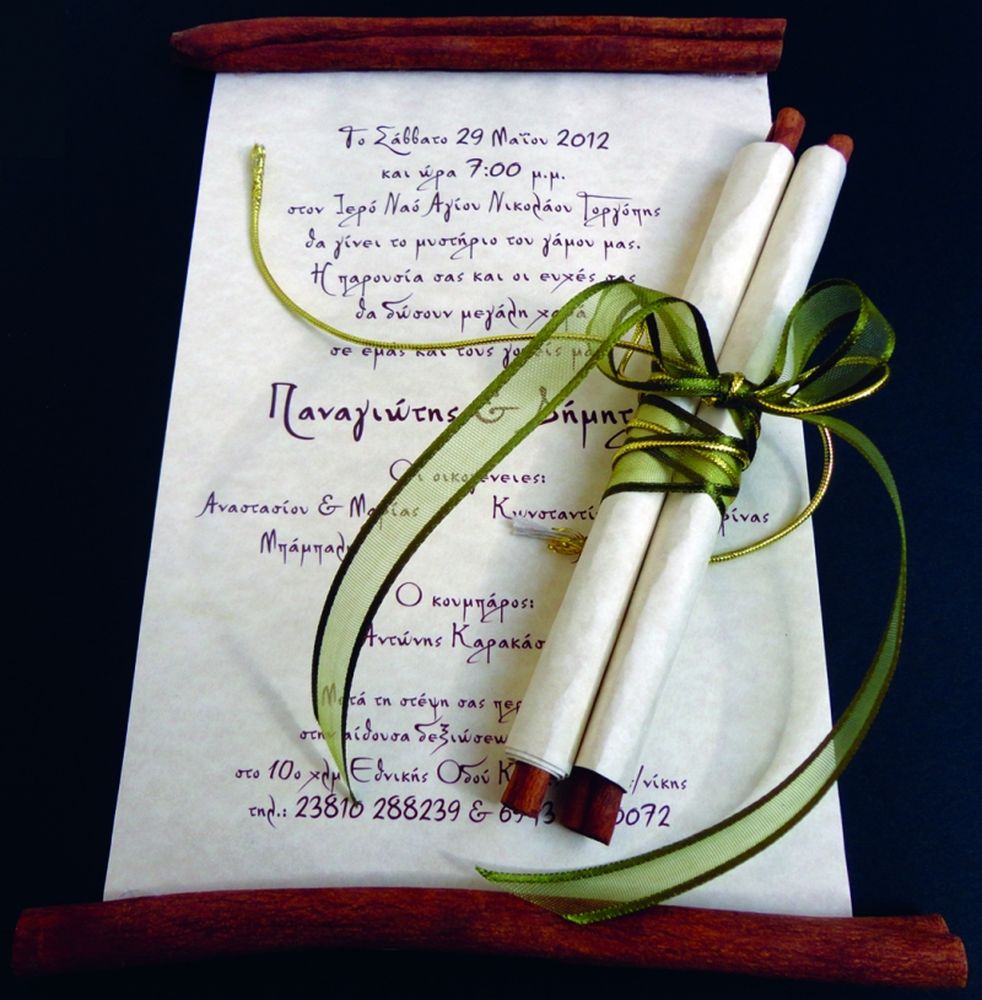 Το Σάββατο 29 Μαΐου 2012
και ώρα 7:00 μ.μ.
στον Ιερό Ναό Αγίου Νικολάου Γοργόπης
θα γίνει το μυστήριο του γάμου μας.
Η παρουσία σας και οι ευχές σας
θα δώσουν μεγάλη χαρά
σε εμάς και τους γονείς μας
Παναγιώτης &
Οι οικογένειες:
Αναστασίου & Μαρίας
Ο κουμπάρος:
Αντώνης
Μετά τη στέψη σας
στην αίθουσα
στο 10ο χλμ Εθνικής Οδού
τηλ.: 23810 288239 &